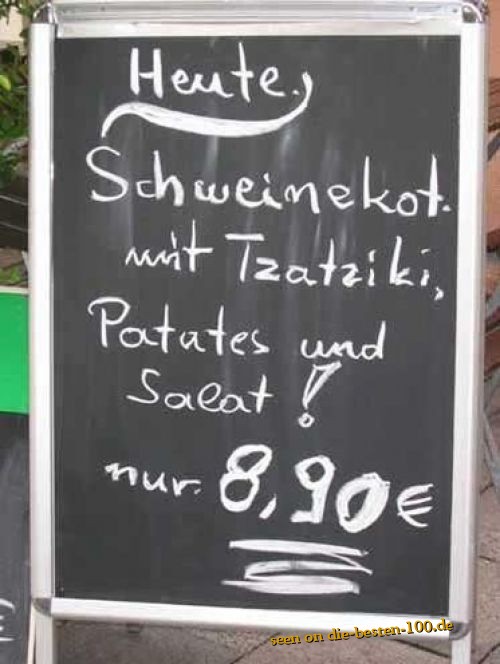 Heute,
Schweinekot.
mit Tzatziki,
Patates und
Salat !
nur. 8,90€
seen on die-besten-100.de